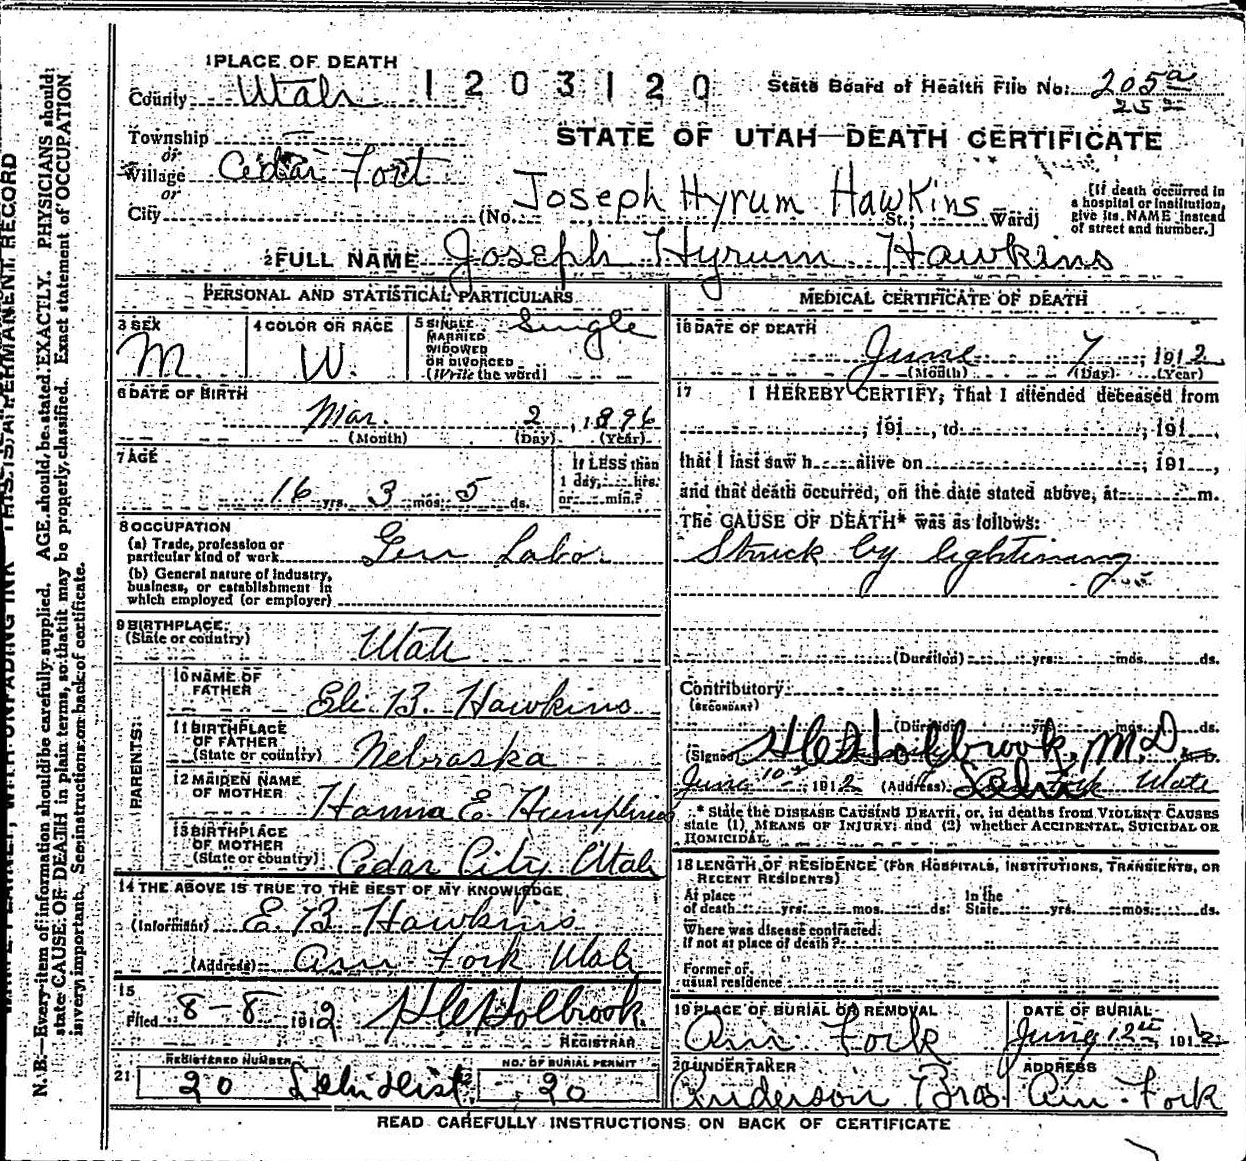 1 PLACE OF DEATH
County Utah 1203120 State Board of Health File No. 205a
25
Township
or
Village Cedar Fort
or
City (No. St.; Ward)
STATE OF UTAH—DEATH CERTIFICATE
Joseph Hyrum Hawkins
[If death occurred in a hospital or institution, give its NAME instead of street and number.]
2 FULL NAME Joseph Hyrum Hawkins
PERSONAL AND STATISTICAL PARTICULARS
3 SEX
M.
4 COLOR OR RACE
W.
5 SINGLE Single
MARRIED
WIDOWED
OR DIVORCED
(Write the word)
6 DATE OF BIRTH
Mar. 2, 1896
(Month) (Day) (Year)
7 AGE
16 yrs. 3 mos. 5 ds.
If LESS than
1 day, hrs.
or min.?
8 OCCUPATION
(a) Trade, profession or
particular kind of work Gen Labo.
(b) General nature of industry,
business, or establishment in
which employed (or employer)
9 BIRTHPLACE
(State or country) Utah
PARENTS
10 NAME OF
FATHER Eli B. Hawkins
11 BIRTHPLACE
OF FATHER
(State or country) Nebraska
12 MAIDEN NAME
OF MOTHER Hanna E Humphries
13 BIRTHPLACE
OF MOTHER
(State or country) Cedar City Utah
14 THE ABOVE IS TRUE TO THE BEST OF MY KNOWLEDGE
(Informant) E B Hawkins
(Address) Am Fork Utah
15
Filed 8-8 1912 Holbrook.
REGISTRAR
21 REGISTERED NUMBER
20 Lehi Dist.
NO. OF BURIAL PERMIT
20
MEDICAL CERTIFICATE OF DEATH
16 DATE OF DEATH
June 7, 1912
(Month) (Day) (Year)
17 I HEREBY CERTIFY, That I attended deceased from
, 191 , to , 191 ,
that I last saw h alive on , 191 ,
and that death occurred, on the date stated above, at m.
The CAUSE OF DEATH* was as follows:
Struck by lightining
(Duration) yrs. mos. ds.
Contributory
(SECONDARY)
(Duration) yrs. mos. ds.
(Signed) Holbrook, M.D.
June 10 1912 (Address) Utah
* State the DISEASE CAUSING DEATH, or, in deaths from VIOLENT CAUSES
state (1) MEANS OF INJURY; and (2) whether ACCIDENTAL, SUICIDAL OR
HOMICIDAL.
18 LENGTH OF RESIDENCE (FOR HOSPITALS, INSTITUTIONS, TRANSIENTS, OR
RECENT RESIDENTS)
At place
of death yrs. mos. ds.
In the
State yrs. mos. ds.
Where was disease contracted
if not at place of death?
Former or
usual residence
19 PLACE OF BURIAL OR REMOVAL
Am Fork
DATE OF BURIAL
June 12th, 1912
20 UNDERTAKER
Anderson Bros
ADDRESS
Am. Fork
READ CAREFULLY INSTRUCTIONS ON BACK OF CERTIFICATE
WITH UNFADING INK—THIS IS A PERMANENT RECORD
N. B.—Every item of information should be carefully supplied. AGE should be stated EXACTLY. PHYSICIANS should
state CAUSE OF DEATH in plain terms, so that it may be properly classified. Exact statement of OCCUPATION
is very important. See instructions on back of certificate.